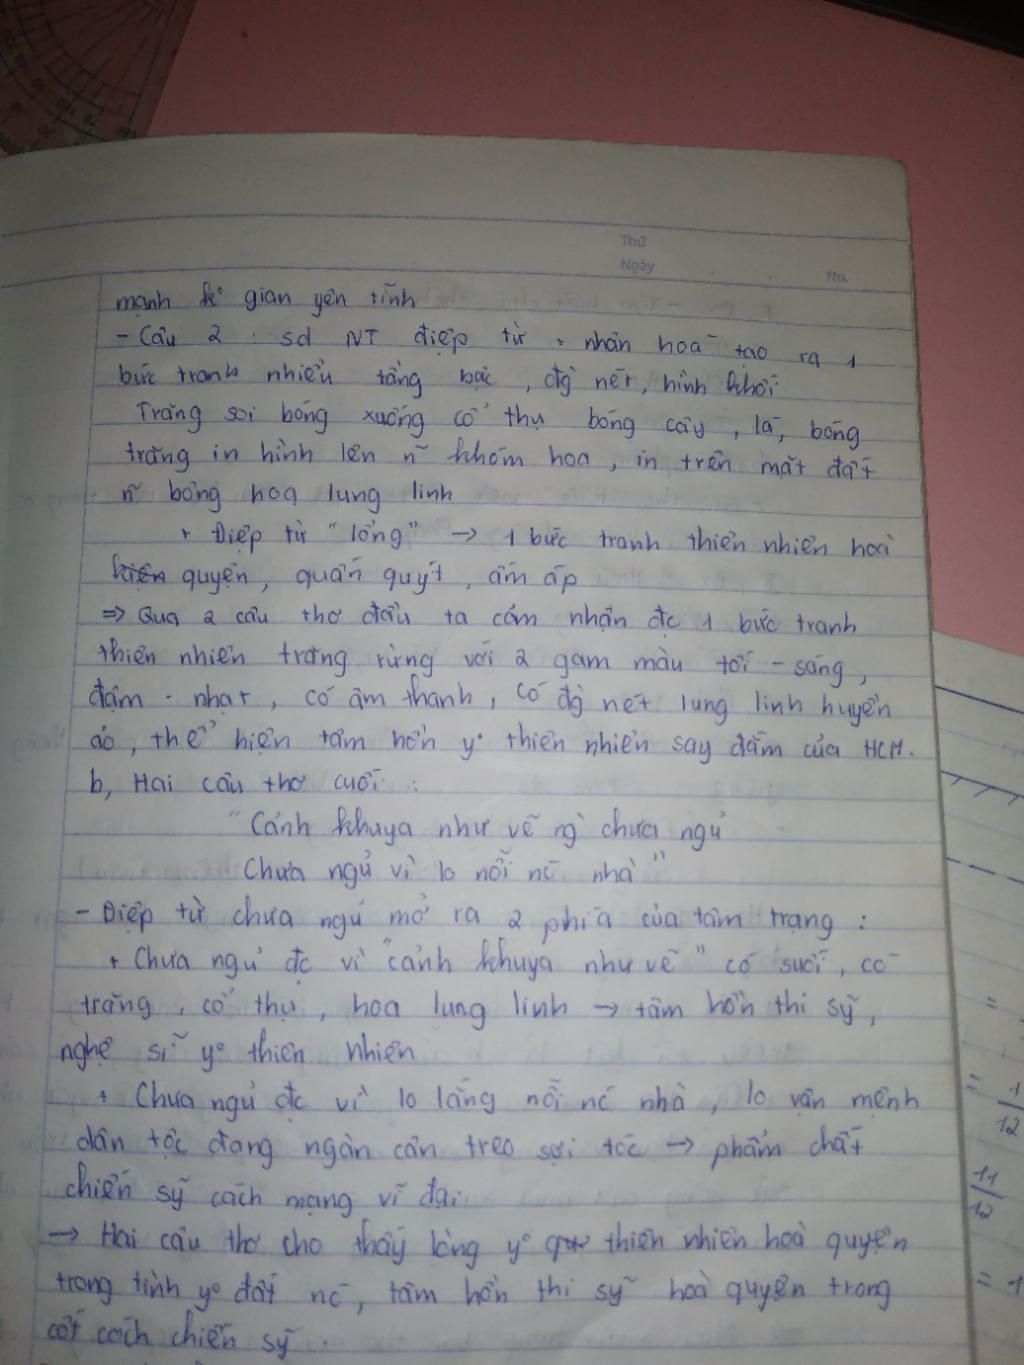 Thứ
Ngày
No.
mạnh k° gian yên tĩnh
- Câu 2 : sd NT điệp từ, nhân hoá tạo ra 1
bức tranh nhiều tầng bậc, đg nét, hình khối
Trăng soi bóng xuống cổ thụ bóng cây, lá, bóng
trăng in hình lên n~ khóm hoa, in trên mặt đất
n~ bông hoa lung linh
+ Điệp từ "lồng" → 1 bức tranh thiên nhiên hoà
quyện, quấn quýt, ấm áp
=> Qua 2 câu thơ đầu ta cảm nhận đc 1 bức tranh
thiên nhiên trăng rừng với 2 gam màu tối - sáng,
đậm - nhạt, có âm thanh, có đg nét lung linh huyền
ảo, thể hiện tâm hồn y° thiên nhiên say đắm của HCM.
b, Hai câu thơ cuối :
"Cảnh khuya như vẽ ng` chưa ngủ
Chưa ngủ vì lo nỗi nc nhà"
- Điệp từ chưa ngủ mở ra 2 phía của tâm trạng :
+ Chưa ngủ đc vì "cảnh khuya như vẽ" có suối, có
trăng, cổ thụ, hoa lung linh → tâm hồn thi sỹ,
nghệ sĩ y° thiên nhiên
+ Chưa ngủ đc vì lo lắng nỗi nc nhà, lo vận mệnh
dân tộc đang ngàn cân treo sợi tóc → phẩm chất
chiến sỹ cách mạng vĩ đại
→ Hai câu thơ cho thấy lòng y° thiên nhiên hoà quyện
trong tình y° đất nc, tâm hồn thi sỹ hoà quyện trong
cốt cách chiến sỹ.
=
= 1
12
11
12
= -1